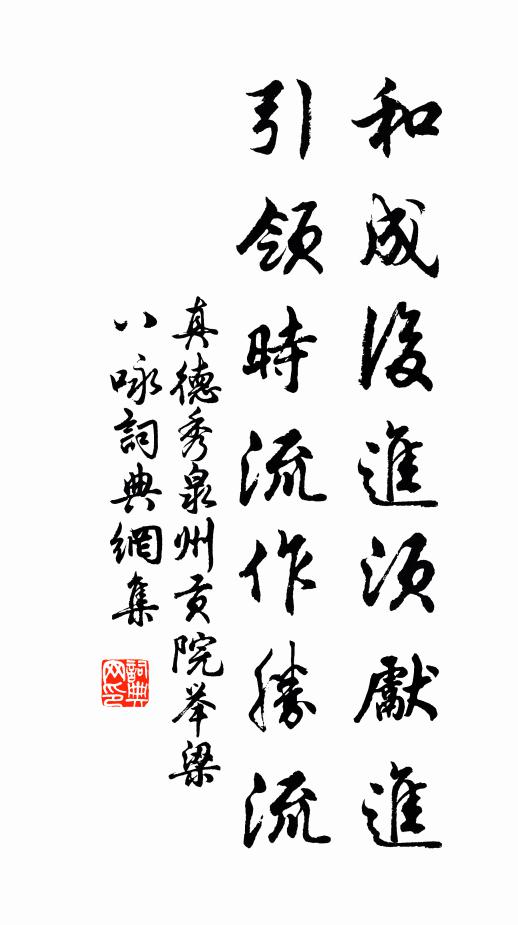 和成後進須獻進
引領時流作勝流
真德秀泉州貢院举梁
八咏詞典網集
詞典網印